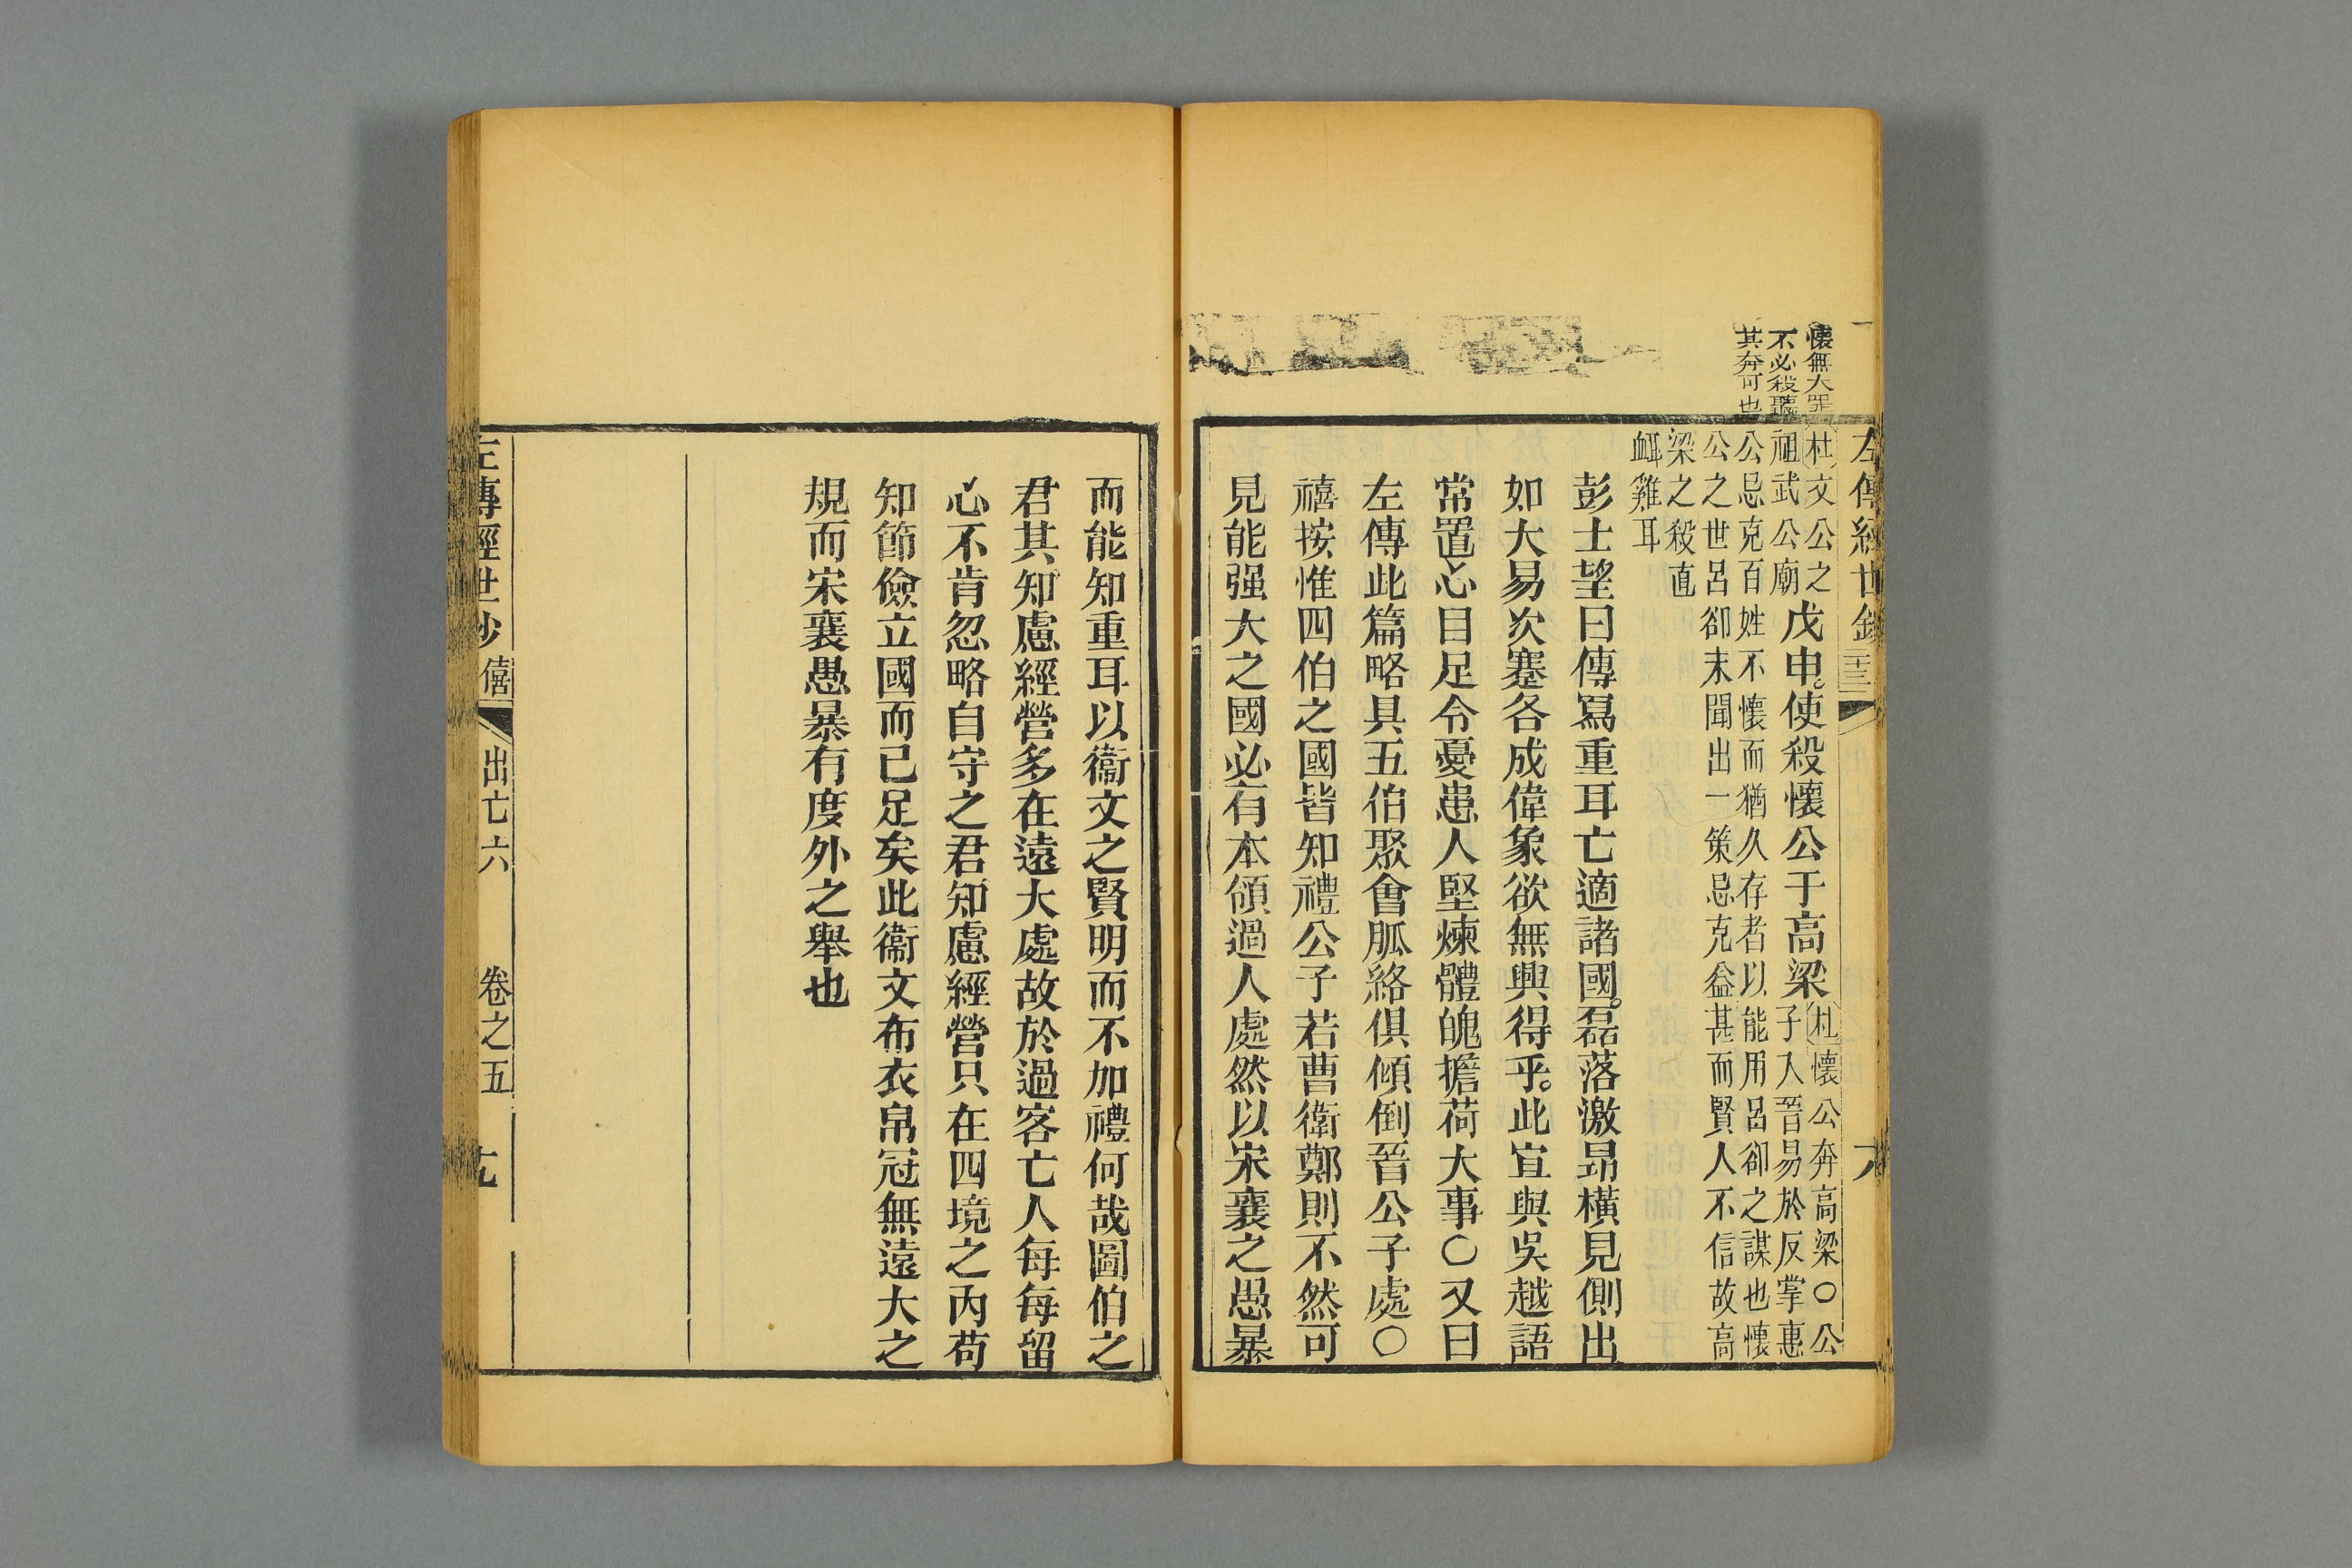 懷無大罪
不必殺聽
其奔可也
左傳經世鈔
杜文公之
祖武公廟
戊申使殺懷公于高梁
杜懷公奔高梁○公
子入晉易於反掌惠
公忌克百姓不懷而猶久存者以能用呂卻之謀也懷
公之世呂卻未聞出一策忌克益甚而賢人不信故高
梁之殺直
衈雞耳
彭士望曰傳寫重耳亡適諸國磊落激昂橫見側出
如大易次蹇各成偉象欲無興得乎此宜與吳越語
常置心目足令憂患人堅煉體魄擔荷大事○又曰
左傳此篇略具五伯聚會脈絡俱傾倒晉公子處○
禧按惟四伯之國皆知禮公子若曹衛鄭則不然可
見能强大之國必有本領過人處然以宋襄之愚暴
而能知重耳以衞文之賢明而不加禮何哉圖伯之
君其知慮經營多在遠大處故於過客亡人每每留
心不肯忽略自守之君知慮經營只在四境之內苟
知節儉立國而已足矣此衞文布衣帛冠無遠大之
規而宋襄愚暴有度外之舉也
左傳經世鈔 僖 出亡六 卷之五